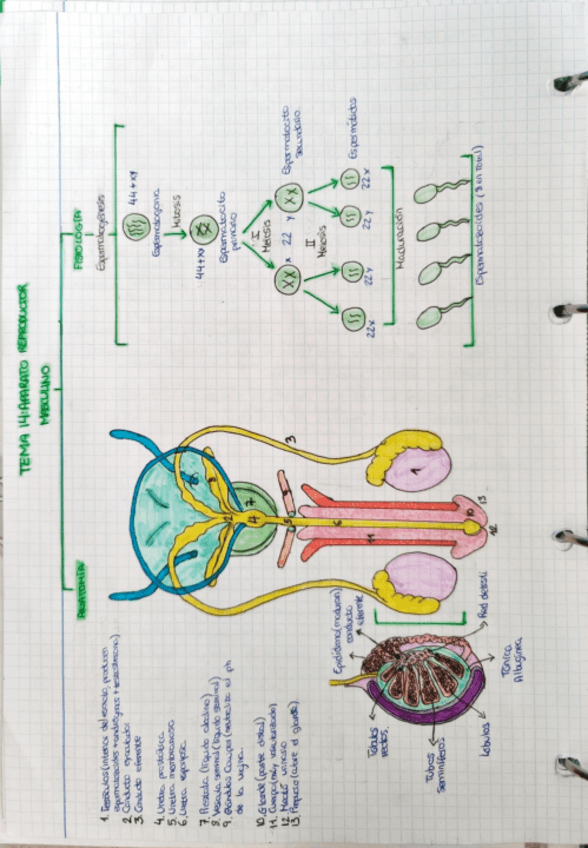 TEMA 14: APARATO REPRODUCTOR
MASCULINO
ANATOMÍA
1. Testículos (interior del escroto, producen
espermatozoides + andrógenos + testosterona)
2. Conducto eyaculador
3. Conducto eferente
4. Uretra prostática
5. Uretra membranosa
6. Uretra esponjosa
7. Próstata (líquido alcalino)
8. Vesícula seminal (líquido seminal)
9. Glándulas Cowper (neutraliza el ph
de la vagina.
10. Glande (parte distal)
11. Cuerpo (muy vascularizado)
12. Meato urinario
13. Prepucio (cubre el glande).
8
8
2
7
4
3
9
5
6
11
1
10
13
12
Epidídimo (maduran)
conducto
eferente
Túbulos
rectos.
Tubos
seminíferos
Lóbulos
Túnica
Albugínea
Red de testi
FISIOLOGÍA
Espermatogénesis
44+xy
Espermatogonia
Mitosis
44+xy
Espermatocito
primario
I
Meiosis
x 22 y
Espermatocito
secundario
II
Meiosis
22x
22y
22y
22x
Espermátidas
Maduración
Espermatozoides (